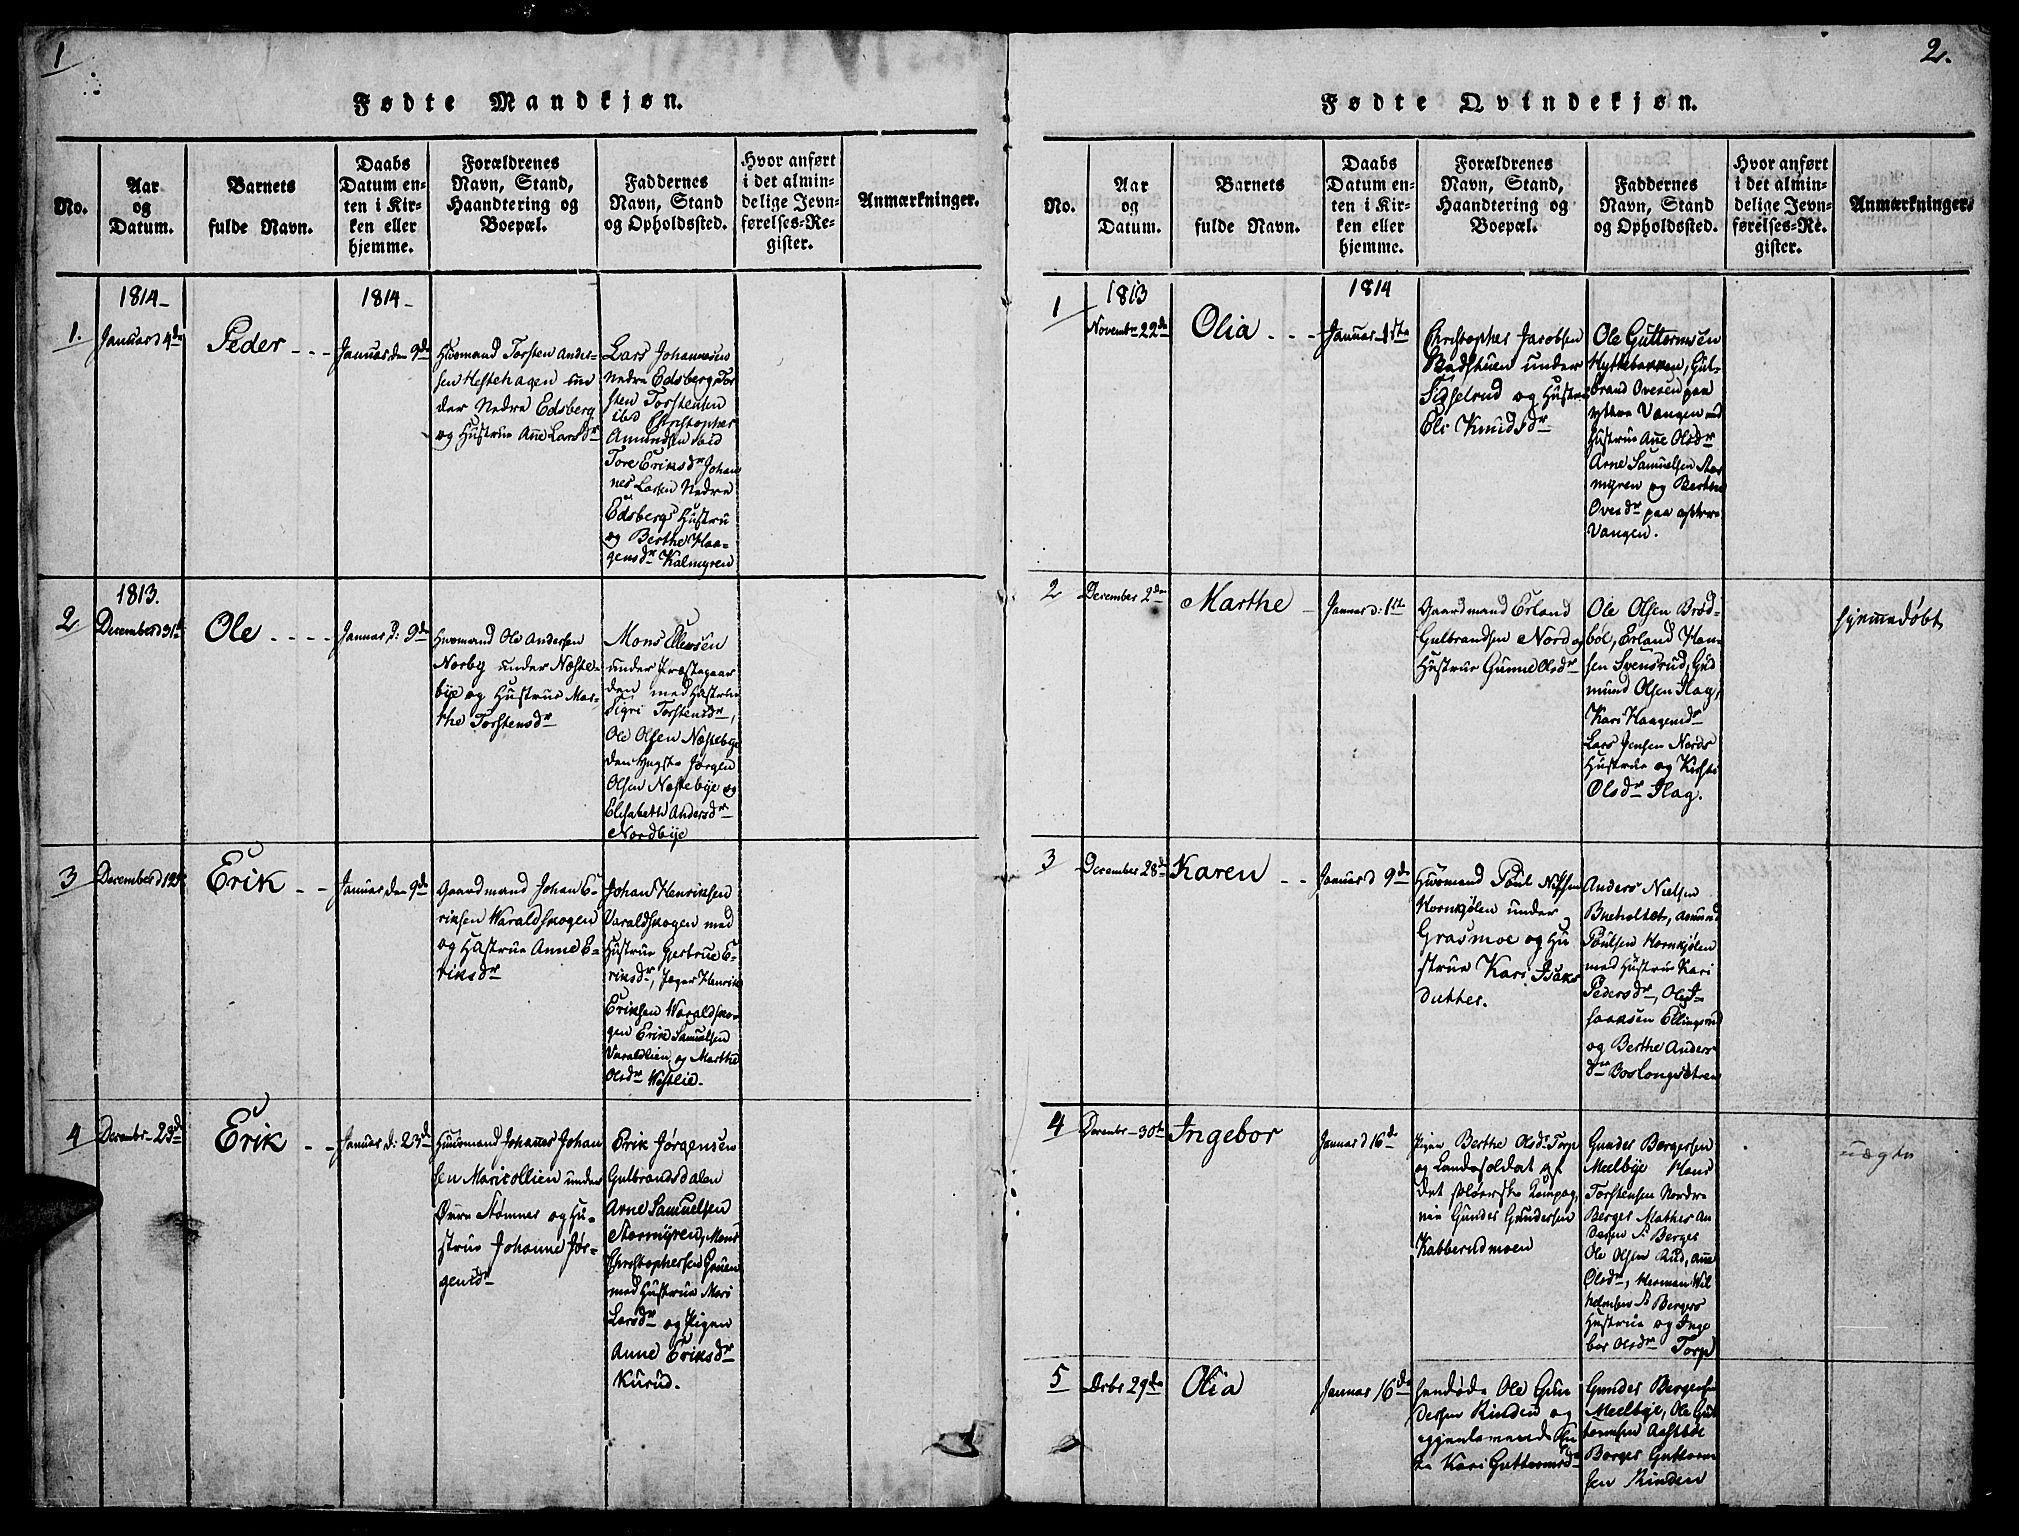 1
Fødte Mandkjøn.
No.
Aar
og
Datum.
Barnets
fulde Navn.
Daabs
Datum en-
ten i Kir-
ken eller
hjemme.
Forældrenes
Navn, Stand,
Haandtering og
Boepæl.
Faddernes
Navn, Stand
og Opholdssted.
Hvor anført
i det almin-
delige Jevn-
førelses-Re-
gister.
Anmærkninger.
1.
1814-
Januar d 4de
Peder
1814-
Januar den 9de
Huusmand Torsten Ander-
sen Hestehagen un
der Nedre Edsberg
og Hustrue Ane Larsdr
Lars Johannesen
Nedre Edsberg Tor
sten Torstensen
ibd Christopher
Amundsen ibid
Tore Eriksdr Johan
nes Larsen Nedre
Edsbergs Hustru
og Berthe Haa-
gensdr Kalmyren
2
1813.
December d 31te
Ole
Januar d: 9de
Huusmand Ole Andersen
Norby under Næste-
bye og Hustrue Mar-
the Torstensdr
Mons Ellevsen
under Præstegaar
den med Hustrue
Sigri Torstensdr,
Ole Olsen Næstebye
den yngste Jørgen
Olsen Næstebye og
Elisabeth Andersdr
Nordbye
3
December d 19de
Erik
Januar den 9de
Gaardmand Johan E-
riksen Waraldskogen
og Hustrue Anne E-
riksdr
Johan Henriksen
Varaldskogen med
Hustrue Gjertrue E-
riksdr, Jæger Henrik
Eriksen Waraldsko-
gen Erik Samuelsen
Varaldlien og Marthe
Olsdr Westlie.
4
Decembr - 23de
Erik
Januar d: 23de
Huusmand Johanes Johan
sen Maricollien under
Øvre Stømner og Hu-
strue Johanne Jør-
gensdr
Erik Jørgensen
Gulbrandsdalen
Arne Samuelsen
Stormyren, Mons
Christophersen Gruen
med Hustrue Mari
Larsdr og Pigen
Anne Eriksdr
Kurud.
2.
Fødte Qvindekjøn.
No.
Aar
og
Datum.
Barnets
fulde Navn.
Daabs
Datum en-
ten i Kir-
ken eller
hjemme.
Forældrenes
Navn, Stand,
Haandtering og
Boepæl.
Faddernes
Navn, Stand
og Opholdssted.
Hvor anført
i det almin-
delige Jevn-
førelses-Re-
gister.
Anmærkninger.
1
1813
Novembr 22de
Olia
1814
Januar 1ste
Christopher Jacobsen
Badstuen under
Sigselrud og Hustrue
Eli Knudsdr
Ole Guttormsen
Hyttebakken, Gul-
brand Ovesen paa
yttre Vangen med
Hustrue Ane Olsdr
Arne Samuelsen Stor
myren og Berthe
Ovesdr paa yttre
Vangen.
2
December 2de
Marthe
Januar d: 1ste
Gaardmand Erland
Gulbrandsen Nord og
Hustrue Gunne Olsdr
Ole Olsen Brød-
bøl, Erland Han-
sen Svensrud, Gud
mund Olsen Slag,
Kari Haagensdr
Lars Jensen Nords
Hustrue og Kirsti
Olsdr Slag.
hjemmedøbt
3
December 28de
Karen
Januar d 9de
Huusmand Poul Nilsen
Kornkjølen under
Grasmoe og Hu
strue Kari Isaks
datter.
Anders Nielsen
Bueholtet, Amund
Poulsen Hornkjølen
med Hustrue Kari
Pedersdr, Ole I-
saaksen Ellingsrud
og Berthe Anders
dr Boslongsætren
4
Decembr - 30te
Ingebor
Januar d 16de
Pigen Berthe Olsdr Torp
og Landsoldat af
det soløerske Kompag-
nie Gunder Gundersen
Kabberudmoen
Gunder Bergersen
Meelbye Hans
Torstensen Nordre
Berger Mathes An
dersen S Berger
Ole Olsen Rud, Ane
Olsdr, Herman Wil
helmsen S Bergers
Hustrue og Inge
bor Olsdr Torp
uægte
5
Decbr 29de
Olia
Januar 16de
Ole Gun
dersen Rinden og
Kari Guttormsdr
Gunder Bergersen
Meelbye, Ole Gut
tormsen Aastbøl
Borger Guttorm
sen Rinden